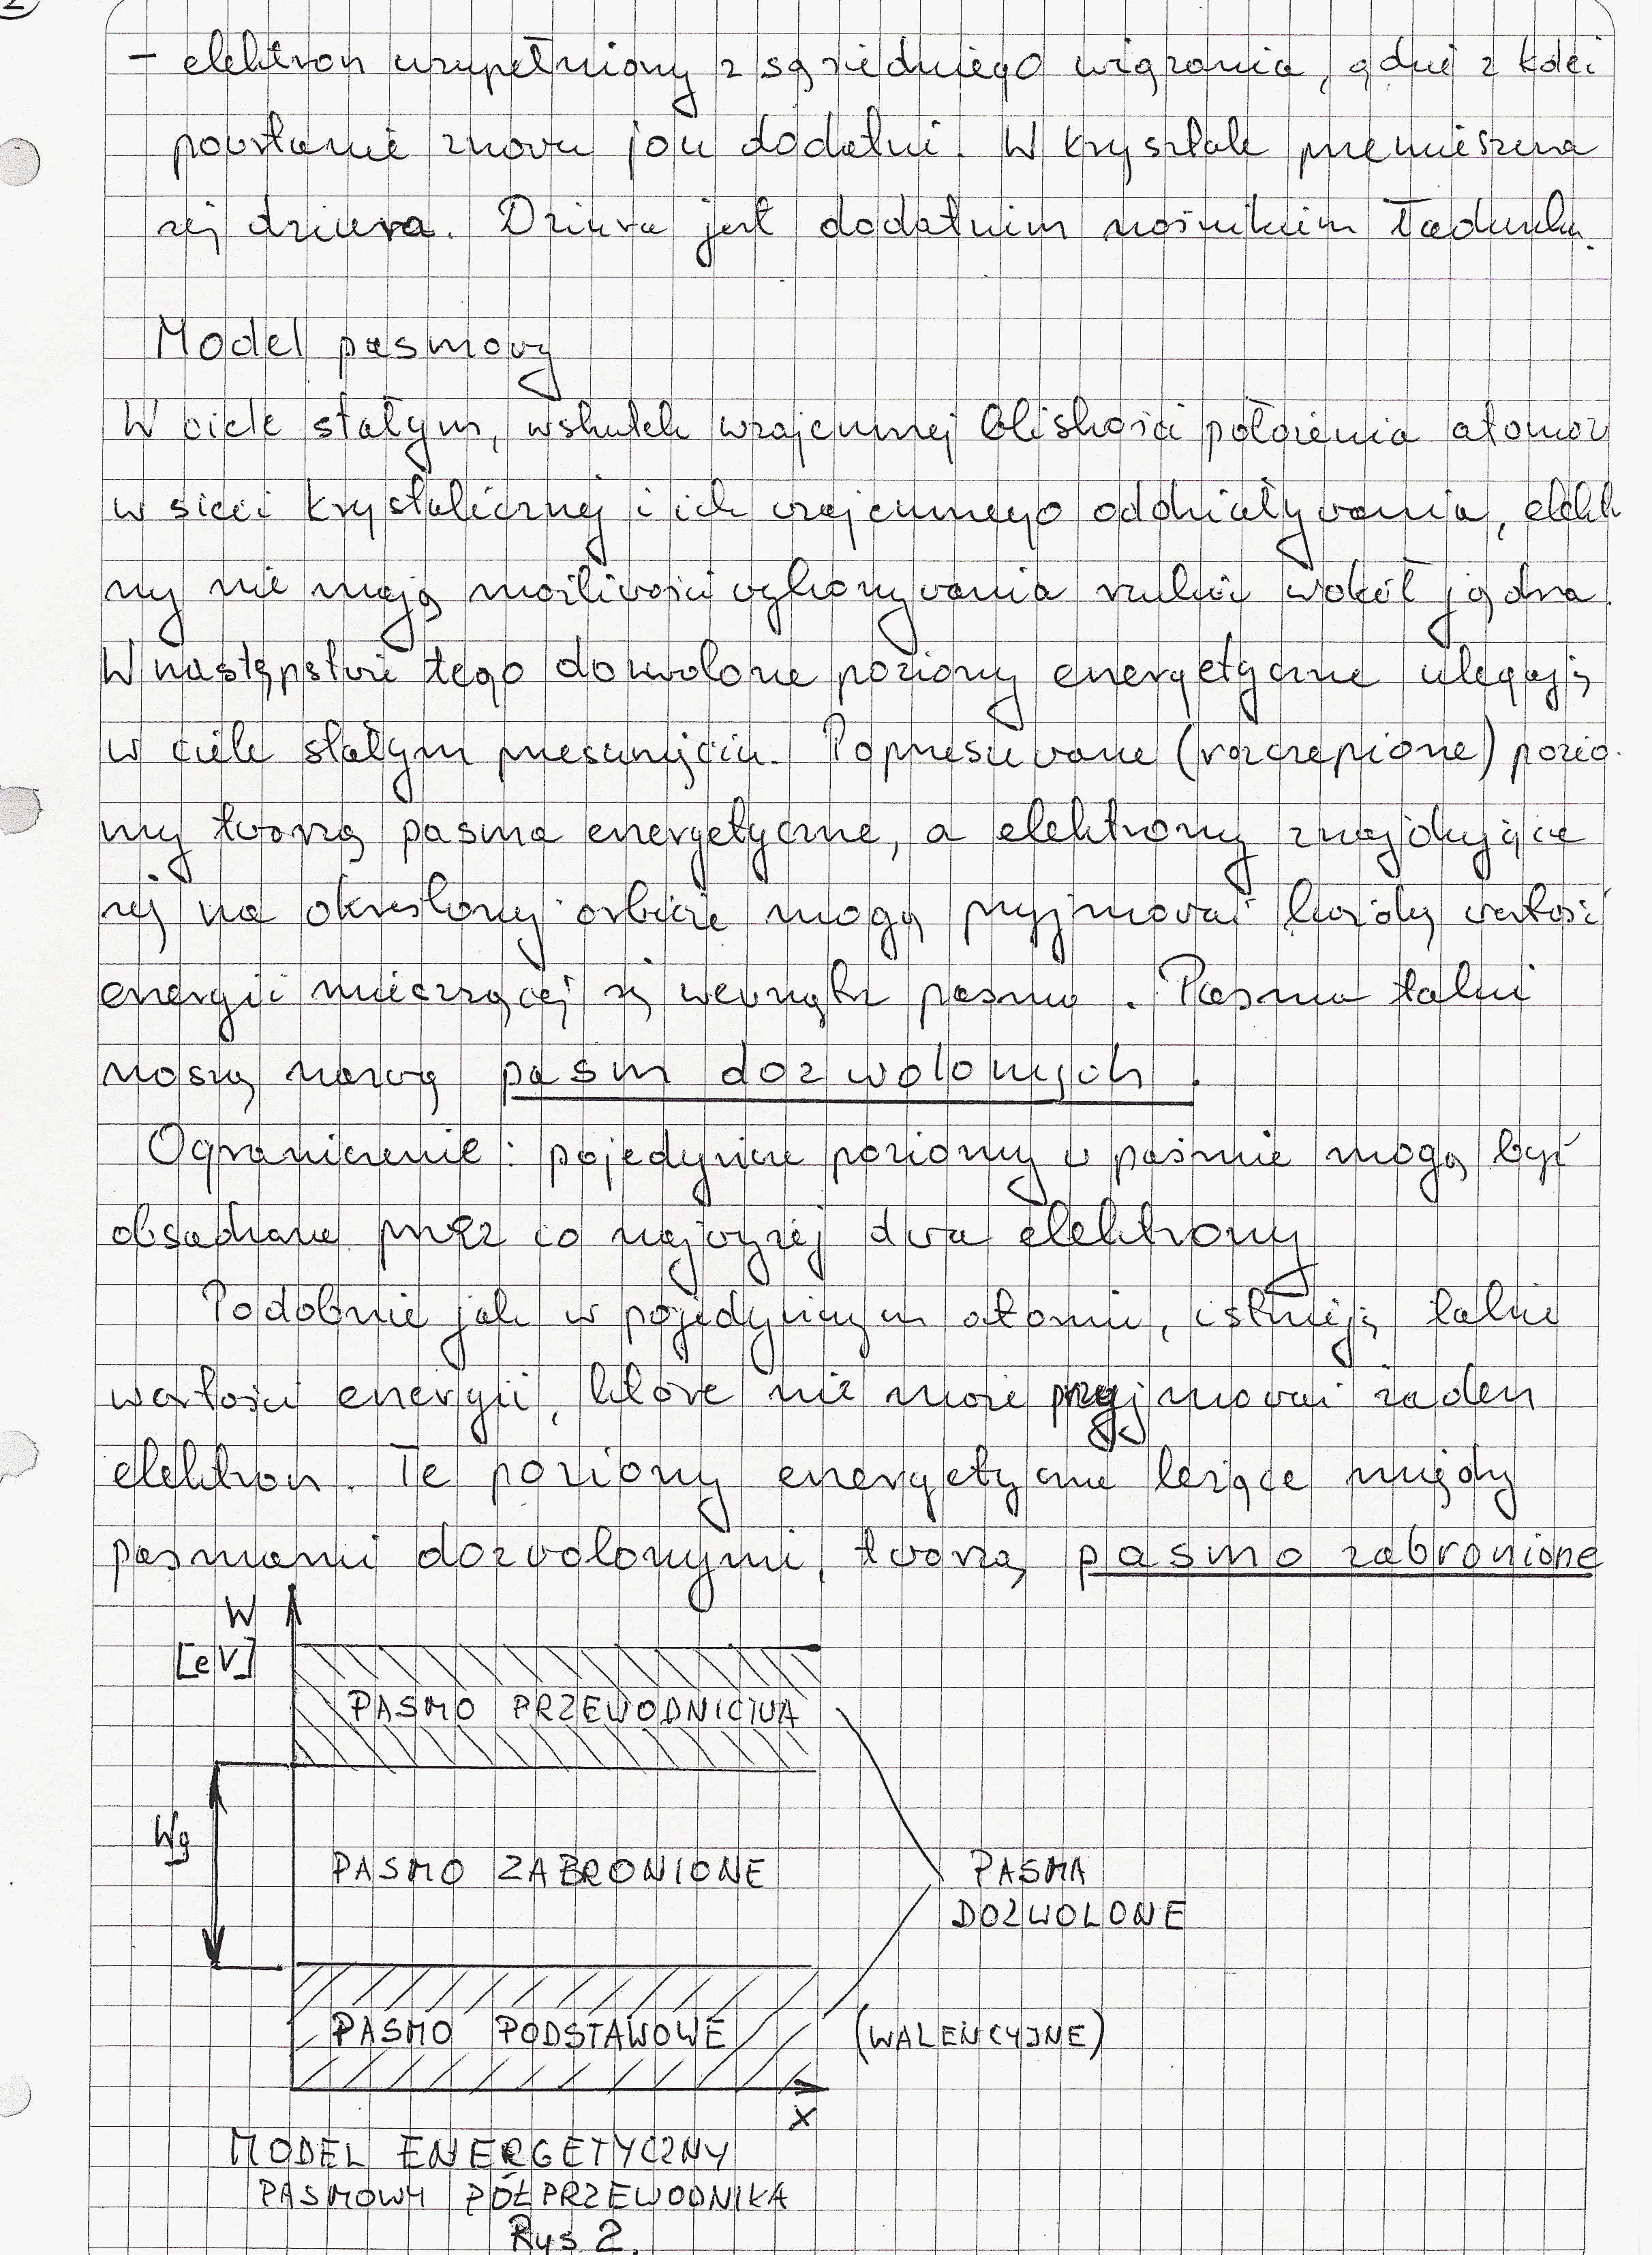 2
- elektron uzupełniony z sąsiedniego wiązania, gdzie z kolei
powstanie znowu jon dodatni. W krysztale przemieszcza
się dziura. Dziura jest dodatnim nośnikiem ładunku.
Model pasmowy
W ciele stałym, wskutek wzajemnej bliskości położenia atomów
w sieci krystalicznej i ich wzajemnego oddziaływania, elektro
ny nie mają możliwości wykonywania ruchu wokół jądra.
W następstwie tego dozwolone poziomy energetyczne ulegają
w ciele stałym przesunięciu. Poprzesuwane (rozczepione) pozio-
my tworzą pasma energetyczne, a elektrony znajdujące
się na określonej orbicie mogą przyjmować każdą wartość
energii mieszczącej się wewnątrz pasma. Pasma takie
noszą nazwę pasm dozwolonych.
Ograniczenie: pojedyncze poziomy w paśmie mogą być
obsadzane przez co najwyżej dwa elektrony
Podobnie jak w pojedynczym atomie, istnieją takie
wartości energii, które nie może przyjmować żaden
elektron. Te poziomy energetyczne leżące między
pasmami dozwolonymi, tworzą pasmo zabronione
W
[eV]
PASMO PRZEWODNICTWA
Wg
PASMO ZABRONIONE
PASMA
DOZWOLONE
PASMO PODSTAWOWE (WALENCYJNE)
x
MODEL ENERGETYCZNY
PASMOWY PÓŁPRZEWODNIKA
Rys 2.